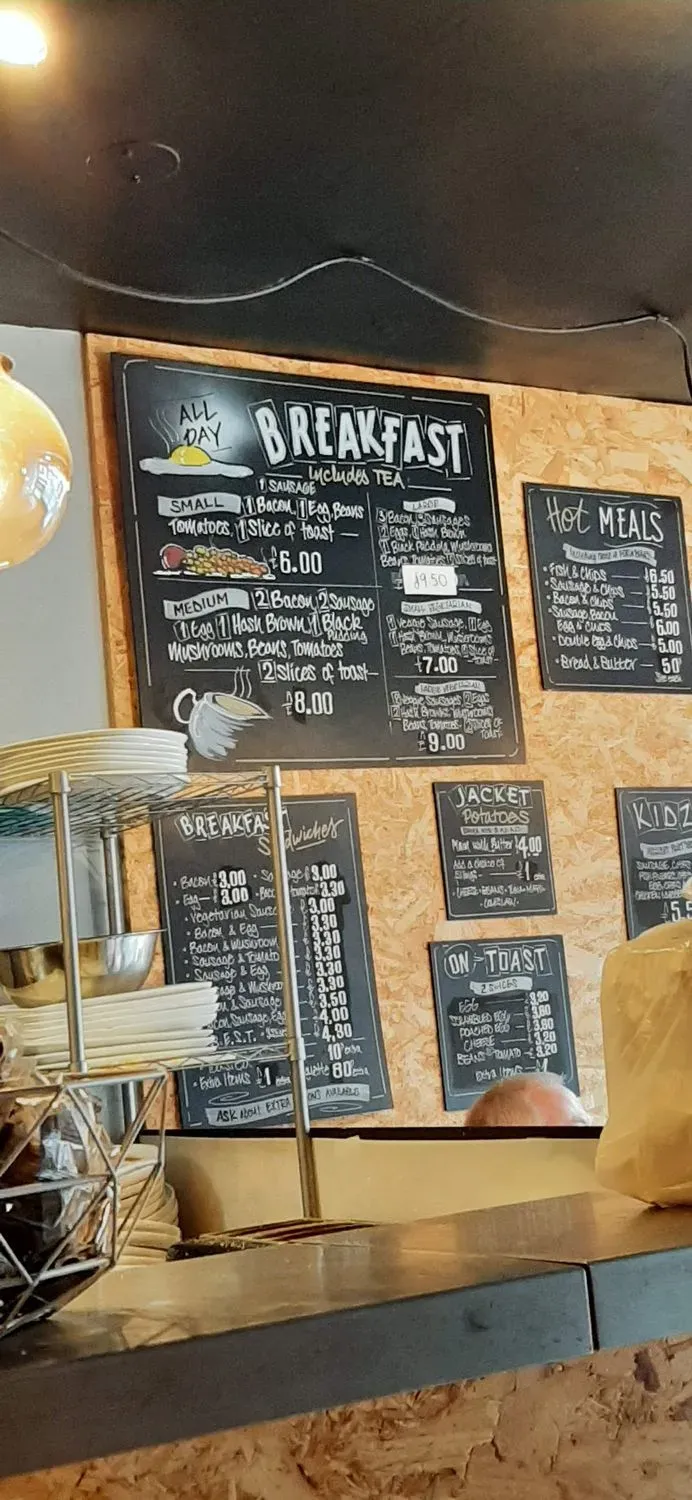 ALL
DAY
BREAKFAST
includes TEA
1 SAUSAGE
SMALL 1 Bacon, 1 Egg, Beans
Tomatoes, 1 Slice of toast —
£6.00
MEDIUM 2 Bacon, 2 Sausage
1 Egg 1 Hash Brown 1 Black
Pudding
Mushrooms, Beans, Tomatoes
2 Slices of toast—
£8.00
LARGE
3 Bacon, 3 Sausages
2 Eggs, Hash Brown
1 Black Pudding Mushrooms
Beans Tomatoes Slices of toast
£9.50
SMALL VEGETARIAN
Veggie Sausage, 1 Egg
1 Hash Brown, Mushrooms
Beans, Tomatoes, Slice of
toast—
£7.00
LARGE VEGETARIAN
Veggie Sausages 2 Eggs
2 Hash Browns, Mushrooms
Beans, Tomatoes, 2 Slices of
Toast
£9.00
Hot MEALS
• Fish & Chips — £6.50
• Sausage & Chips — £5.50
• Bacon & Chips — £5.50
• Sausage, Bacon,
Egg & Chips — 6.00
• Double egg & Chips — 5.00
• Bread & Butter — 50P
BREAKFA
Sandwiches
• Bacon £3.00
• Egg — 3.00
• Vegetarian Sausa
• Bacon & Egg
• Bacon & Mushroom
• Sausage & Tomato
• Sausage & Egg
3.00
3.30
3.00
3.30
3.30
3.30
3.30
3.30
3.50
4.00
4.30
10P extra
• Extra Items £1 extra
60P extra
ASK About EXTRA
ONS AVAILABLE
JACKET
Potatoes
Plain with Butter £4.00
Add a choice of
fillings — £1 extra
• CHEESE • BEANS • TUNA MAYO
• COLESLAW •
ON TOAST
2 SLICES
EGG 3.20
SCRAMBLED EGG 3.60
POACHED EGG 3.60
CHEESE 3.20
BEANS TOMATO 3.20
Extra Items £1
KIDZ
SAUSAGE, CHIPS